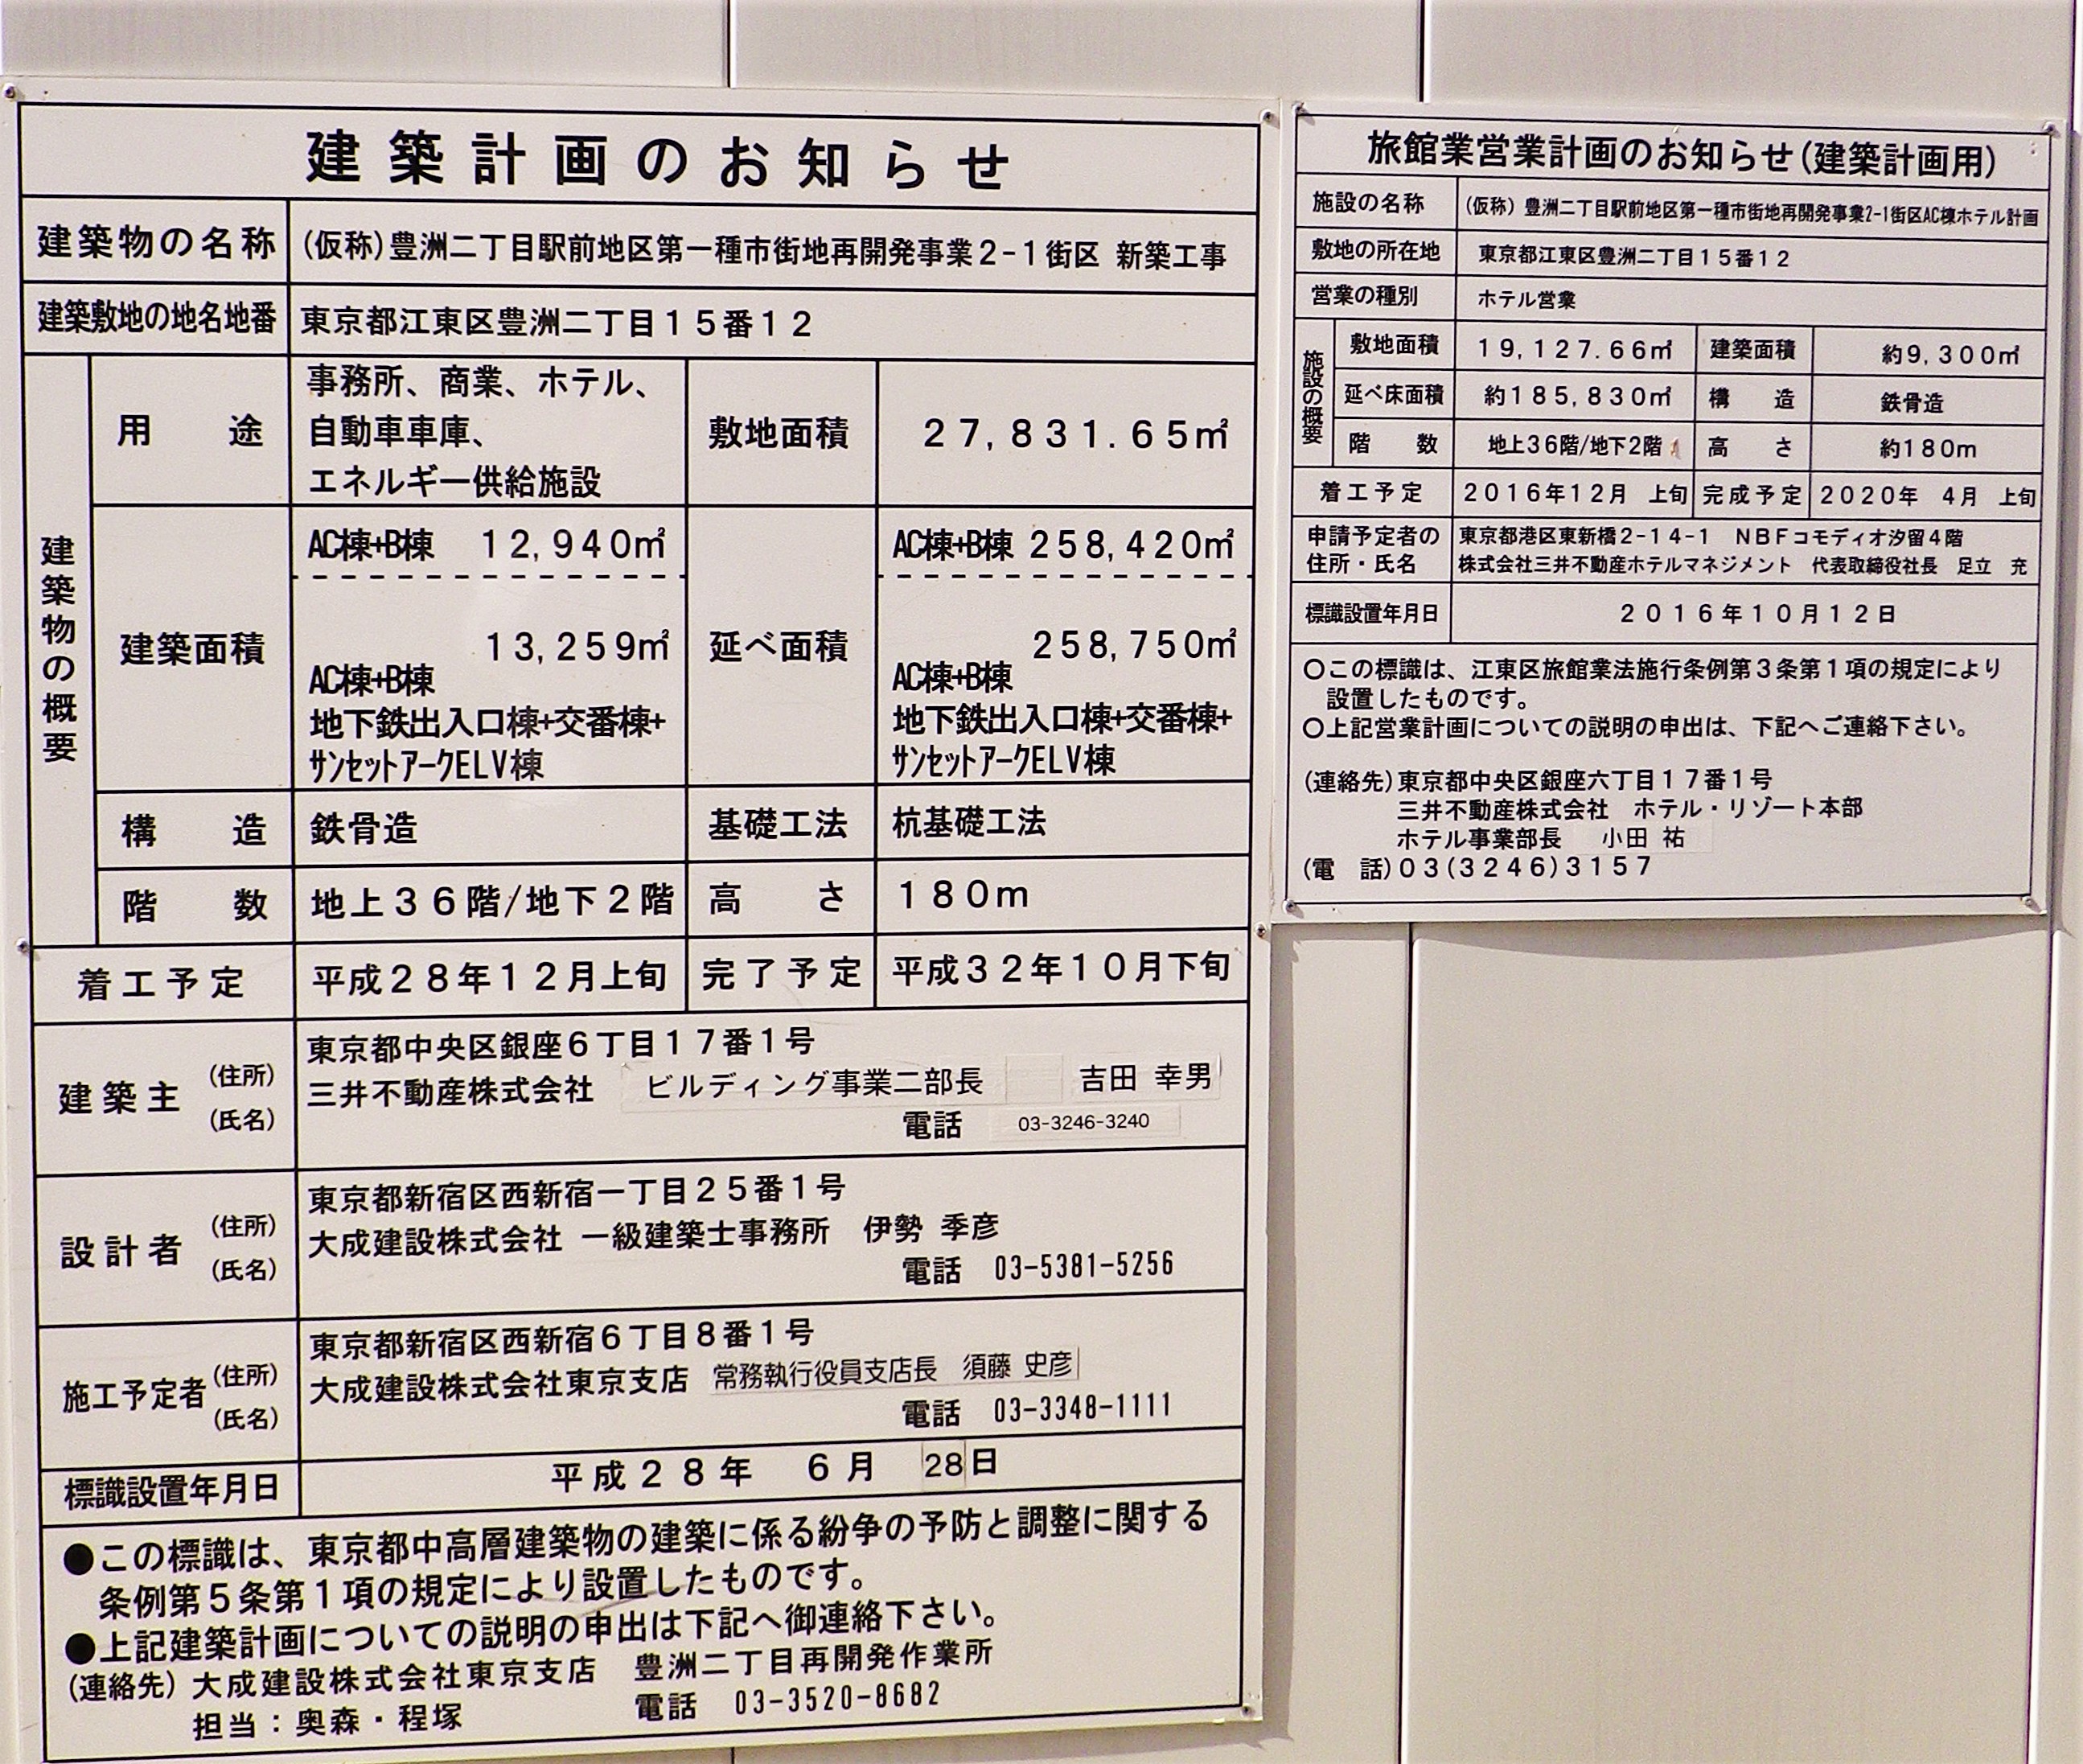 建築計画のお知らせ
建築物の名称 (仮称)豊洲二丁目駅前地区第一種市街地再開発事業2-1街区 新築工事
建築敷地の地名地番 東京都江東区豊洲二丁目15番12
建築物の概要
用途 事務所、商業、ホテル、
自動車車庫、
エネルギー供給施設
敷地面積 27,831.65㎡
建築面積 AC棟+B棟 12,940㎡
13,259㎡
AC棟+B棟
地下鉄出入口棟+交番棟+
サンセットアークELV棟
延べ面積 AC棟+B棟 258,420㎡
258,750㎡
AC棟+B棟
地下鉄出入口棟+交番棟+
サンセットアークELV棟
構造 鉄骨造 基礎工法 杭基礎工法
階数 地上36階/地下2階 高さ 180m
着工予定 平成28年12月上旬 完了予定 平成32年10月下旬
建築主 (住所) (氏名)
東京都中央区銀座6丁目17番1号
三井不動産株式会社 ビルディング事業二部長 吉田 幸男
電話 03-3246-3240
設計者 (住所) (氏名)
東京都新宿区西新宿一丁目25番1号
大成建設株式会社 一級建築士事務所 伊勢 季彦
電話 03-5381-5256
施工予定者 (住所) (氏名)
東京都新宿区西新宿6丁目8番1号
大成建設株式会社東京支店 常務執行役員支店長 須藤 史彦
電話 03-3348-1111
標識設置年月日 平成28年 6月 28日
●この標識は、東京都中高層建築物の建築に係る紛争の予防と調整に関する
条例第5条第1項の規定により設置したものです。
●上記建築計画についての説明の申出は下記へ御連絡下さい。
(連絡先) 大成建設株式会社東京支店 豊洲二丁目再開発作業所
担当:奥森・程塚 電話 03-3520-8682
旅館業営業計画のお知らせ(建築計画用)
施設の名称 (仮称) 豊洲二丁目駅前地区第一種市街地再開発事業2-1街区AC棟ホテル計画
敷地の所在地 東京都江東区豊洲二丁目15番12
営業の種別 ホテル営業
施設の概要
敷地面積 19,127.66㎡ 建築面積 約9,300㎡
延べ床面積 約185,830㎡ 構造 鉄骨造
階数 地上36階/地下2階 高さ 約180m
着工予定 2016年12月 上旬 完成予定 2020年 4月 上旬
申請予定者の住所・氏名
東京都港区東新橋2-14-1 NBFコモディオ汐留4階
株式会社三井不動産ホテルマネジメント 代表取締役社長 足立 充
標識設置年月日 2016年10月12日
○この標識は、江東区旅館業法施行条例第3条第1項の規定により
設置したものです。
○上記営業計画についての説明の申出は、下記へご連絡下さい。
(連絡先)東京都中央区銀座六丁目17番1号
三井不動産株式会社 ホテル・リゾート本部
ホテル事業部長 小田 祐
(電 話)03(3246)3157